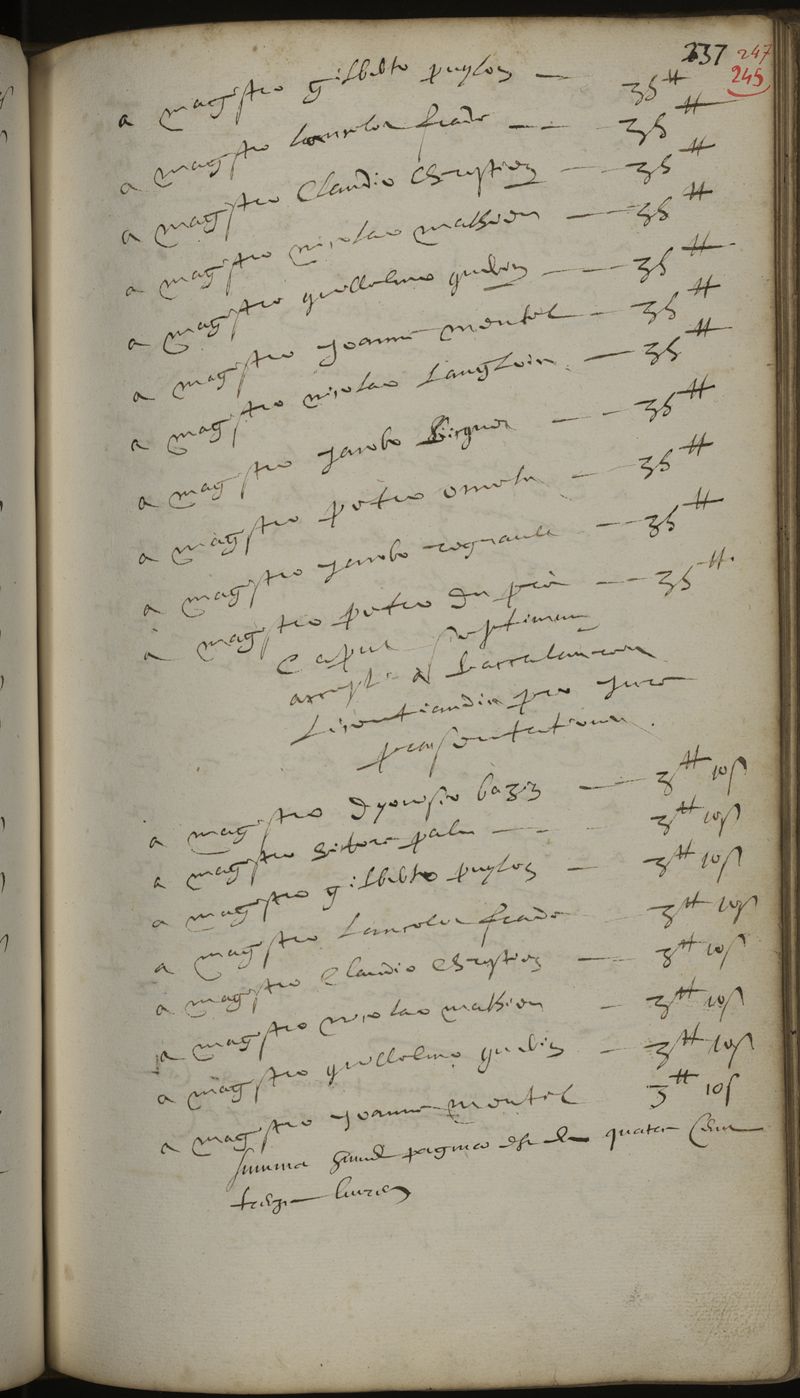 237 247
245
a magistro gilleberto puylon — 35 ₶
a magistro lancelot frade — 35 ₶
a magistro Claudio Chrystien — 35 ₶
a magistro nicolao mathieu — 35 ₶
a magistro guillelmo — 35 ₶
a magistro Joanne montel — 35 ₶
a magistro nicolao Langloix — 35 ₶
a magistro Jacobo — 35 ₶
a magistro petro — 35 ₶
a magistro Jacobo regnault — 35 ₶
a magistro petro du pré — 35 ₶
Caput septimum
accepti a baccalaureis
licentiandis pro jure
praesentationum.
a magistro dyonisio bazin — 3 ₶ 10 s
a magistro palu — 3 ₶ 10 s
a magistro gilleberto puylon — 3 ₶ 10 s
a magistro Lancelot frade 3 ₶ 10 s
a magistro Claudio Chrystien — 3 ₶ 10 s
a magistro nicolao mathieu — 3 ₶ 10 s
a magistro guillelmo — 3 ₶ 10 s
a magistro Joanne montel 3 ₶ 10 s
Summa paginae est de quatre cent
treize livres